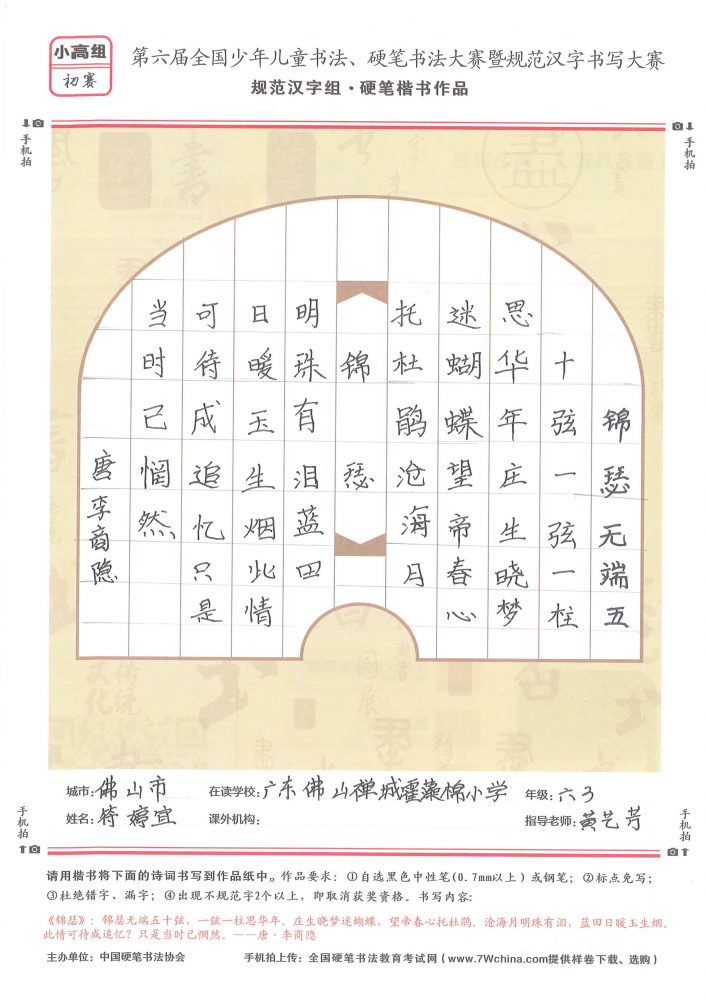 小高组
初赛
第六届全国少年儿童书法、硬笔书法大赛暨规范汉字书写大赛
规范汉字组·硬笔楷书作品
手机拍
手机拍
锦瑟无端五
十弦一弦一柱
思华年庄生晓梦
迷蝴蝶望帝春心
托杜鹃沧海月
锦瑟
明珠有泪蓝田
日暖玉生烟此情
可待成追忆只是
当时已惘然
唐李商隐
城市:佛山市
在读学校:广东佛山禅城霍藻棉小学
年级:六3
姓名:符婷宜
课外机构:
指导老师:黄艺芳
手机拍
手机拍
请用楷书将下面的诗词书写到作品纸中。作品要求:①自选黑色中性笔(0.7mm以上)或钢笔;②标点免写;
③杜绝错字、漏字;④出现不规范字2个以上,即取消获奖资格。书写内容:
《锦瑟》:锦瑟无端五十弦,一弦一柱思华年。庄生晓梦迷蝴蝶,望帝春心托杜鹃。沧海月明珠有泪,蓝田日暖玉生烟。
此情可待成追忆?只是当时已惘然。——唐·李商隐
主办单位:中国硬笔书法协会
手机拍上传:全国硬笔书法教育考试网(www.7Wchina.com提供样卷下载、选购)